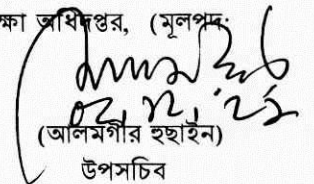 ক্ষা অধিদপ্তর, (মূলপদ:
(আলমগীর হুছাইন)
উপসচিব